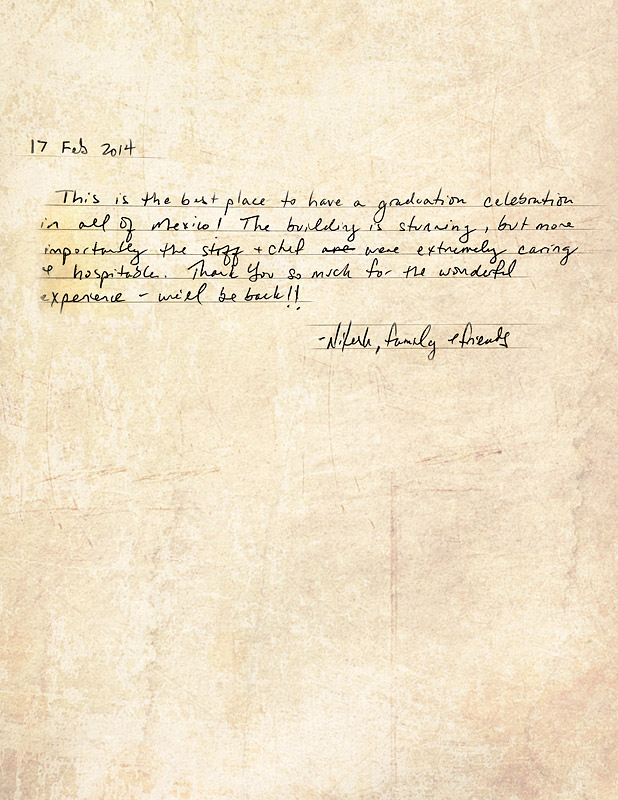 17 Feb 2014
This is the best place to have a graduation celebration
in all of Mexico! The building is stunning, but more
importantly the staff + chef are were extremely caring
+ hospitable. Thank You so much for the wonderful
experience - we'll be back!!
- Nilesh, family + friends